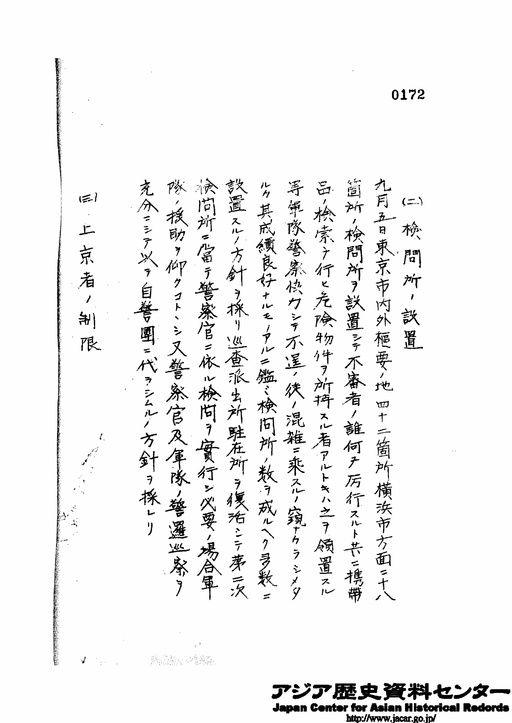 0172
(二)検問所ノ設置
九月五日東京市内外枢要ノ地四十二箇所横浜市方面ニ十八
箇所ノ検問所ヲ設置シテ不審者ノ誰何ヲ厉行スルト共ニ携帯
品ノ検索ヲ行ヒ危険物件ヲ所持スル者アルトキハ之ヲ領置スル
等軍隊警察協力シテ不逞ノ徒ノ混雑ニ乗スルノ窺ナカラシメタ
ルカ其成績良好ナルモノアルニ鑑ミ検問所ノ数ヲ成ルヘク多数ニ
設置スルノ方針ヲ採リ巡査派出所駐在所ヲ復活シテ第二次
検問所ニ當テ警察官ニ依ル検問ヲ實行シ必要ノ場合軍
隊ノ援助ヲ仰クコトヽシ又警察官及軍隊ノ警邏巡察ヲ
充分ニシテ以テ自警團ニ代ラシムルノ方針ヲ採レリ
(三)上京者ノ制限
アジア歴史資料センター
Japan Center for Asian Historical Records
http://www.jacar.go.jp/